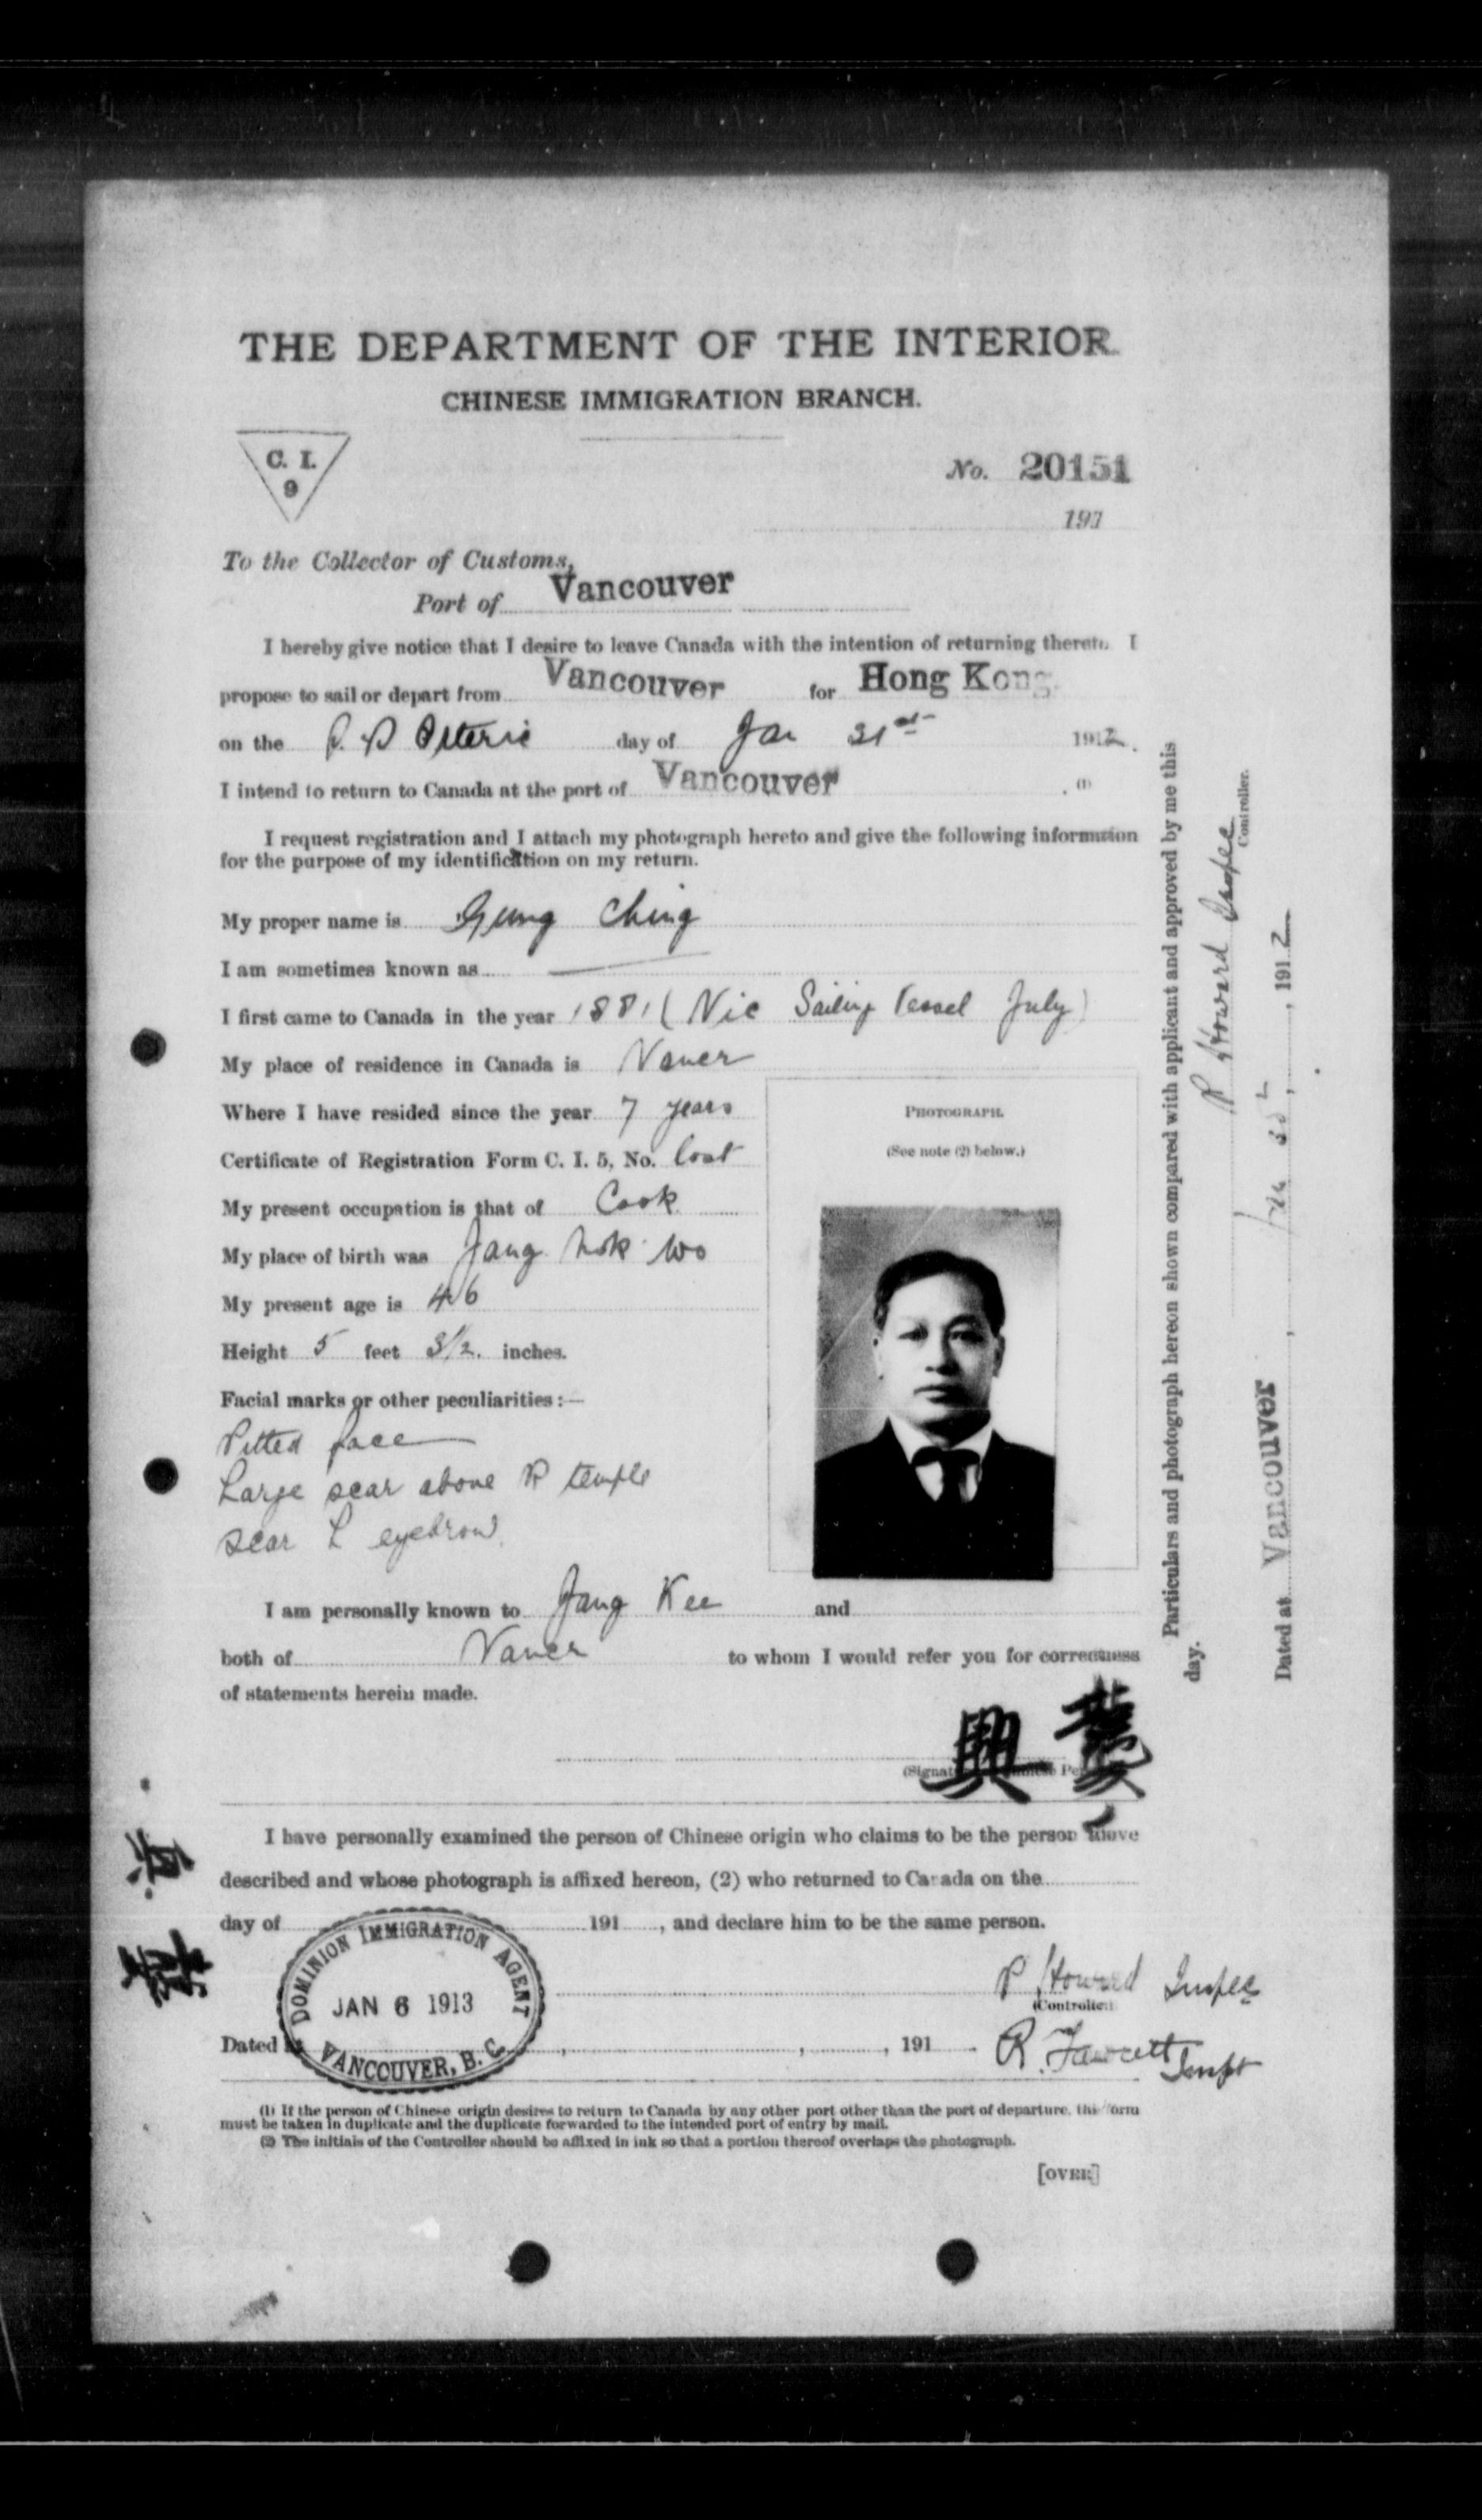 THE DEPARTMENT OF THE INTERIOR.
CHINESE IMMIGRATION BRANCH.
C. I.
9
No. 20151
191
To the Collector of Customs,
Port of Vancouver
I hereby give notice that I desire to leave Canada with the intention of returning thereto. I
propose to sail or depart from Vancouver for Hong Kong
on the day of Jan 31st 1912.
I intend to return to Canada at the port of Vancouver . (1)
I request registration and I attach my photograph hereto and give the following information
for the purpose of my identification on my return.
My proper name is Gung Ching
I am sometimes known as
I first came to Canada in the year 1881 (Vic Sailing Vessel July)
My place of residence in Canada is Vancr
Where I have resided since the year 7 years
Certificate of Registration Form C. I. 5, No. lost
My present occupation is that of Cook
My place of birth was Jang Wo
My present age is 46
Height 5 feet 3½ inches.
Facial marks or other peculiarities:—
Pitted face
Large scar above R temple
Scar L eyebrow
PHOTOGRAPH.
(See note (2) below.)
I am personally known to Jang Kee and
both of Vancr to whom I would refer you for correctness
of statements herein made.
興
I have personally examined the person of Chinese origin who claims to be the person above
described and whose photograph is affixed hereon, (2) who returned to Canada on the
day of 191 , and declare him to be the same person.
P. Howard Inspec
(Controller)
Dated 191 .
R. Fawcett Inspt
DOMINION IMMIGRATION AGENT
JAN 6 1913
VANCOUVER, B. C.
(1) If the person of Chinese origin desires to return to Canada by any other port other than the port of departure, this form
must be taken in duplicate and the duplicate forwarded to the intended port of entry by mail.
(2) The initials of the Controller should be affixed in ink so that a portion thereof overlaps the photograph.
[OVER]
Particulars and photograph hereon shown compared with applicant and approved by me this
day.
P Howard Inspec
Controller.
Dated at Vancouver , , 1912